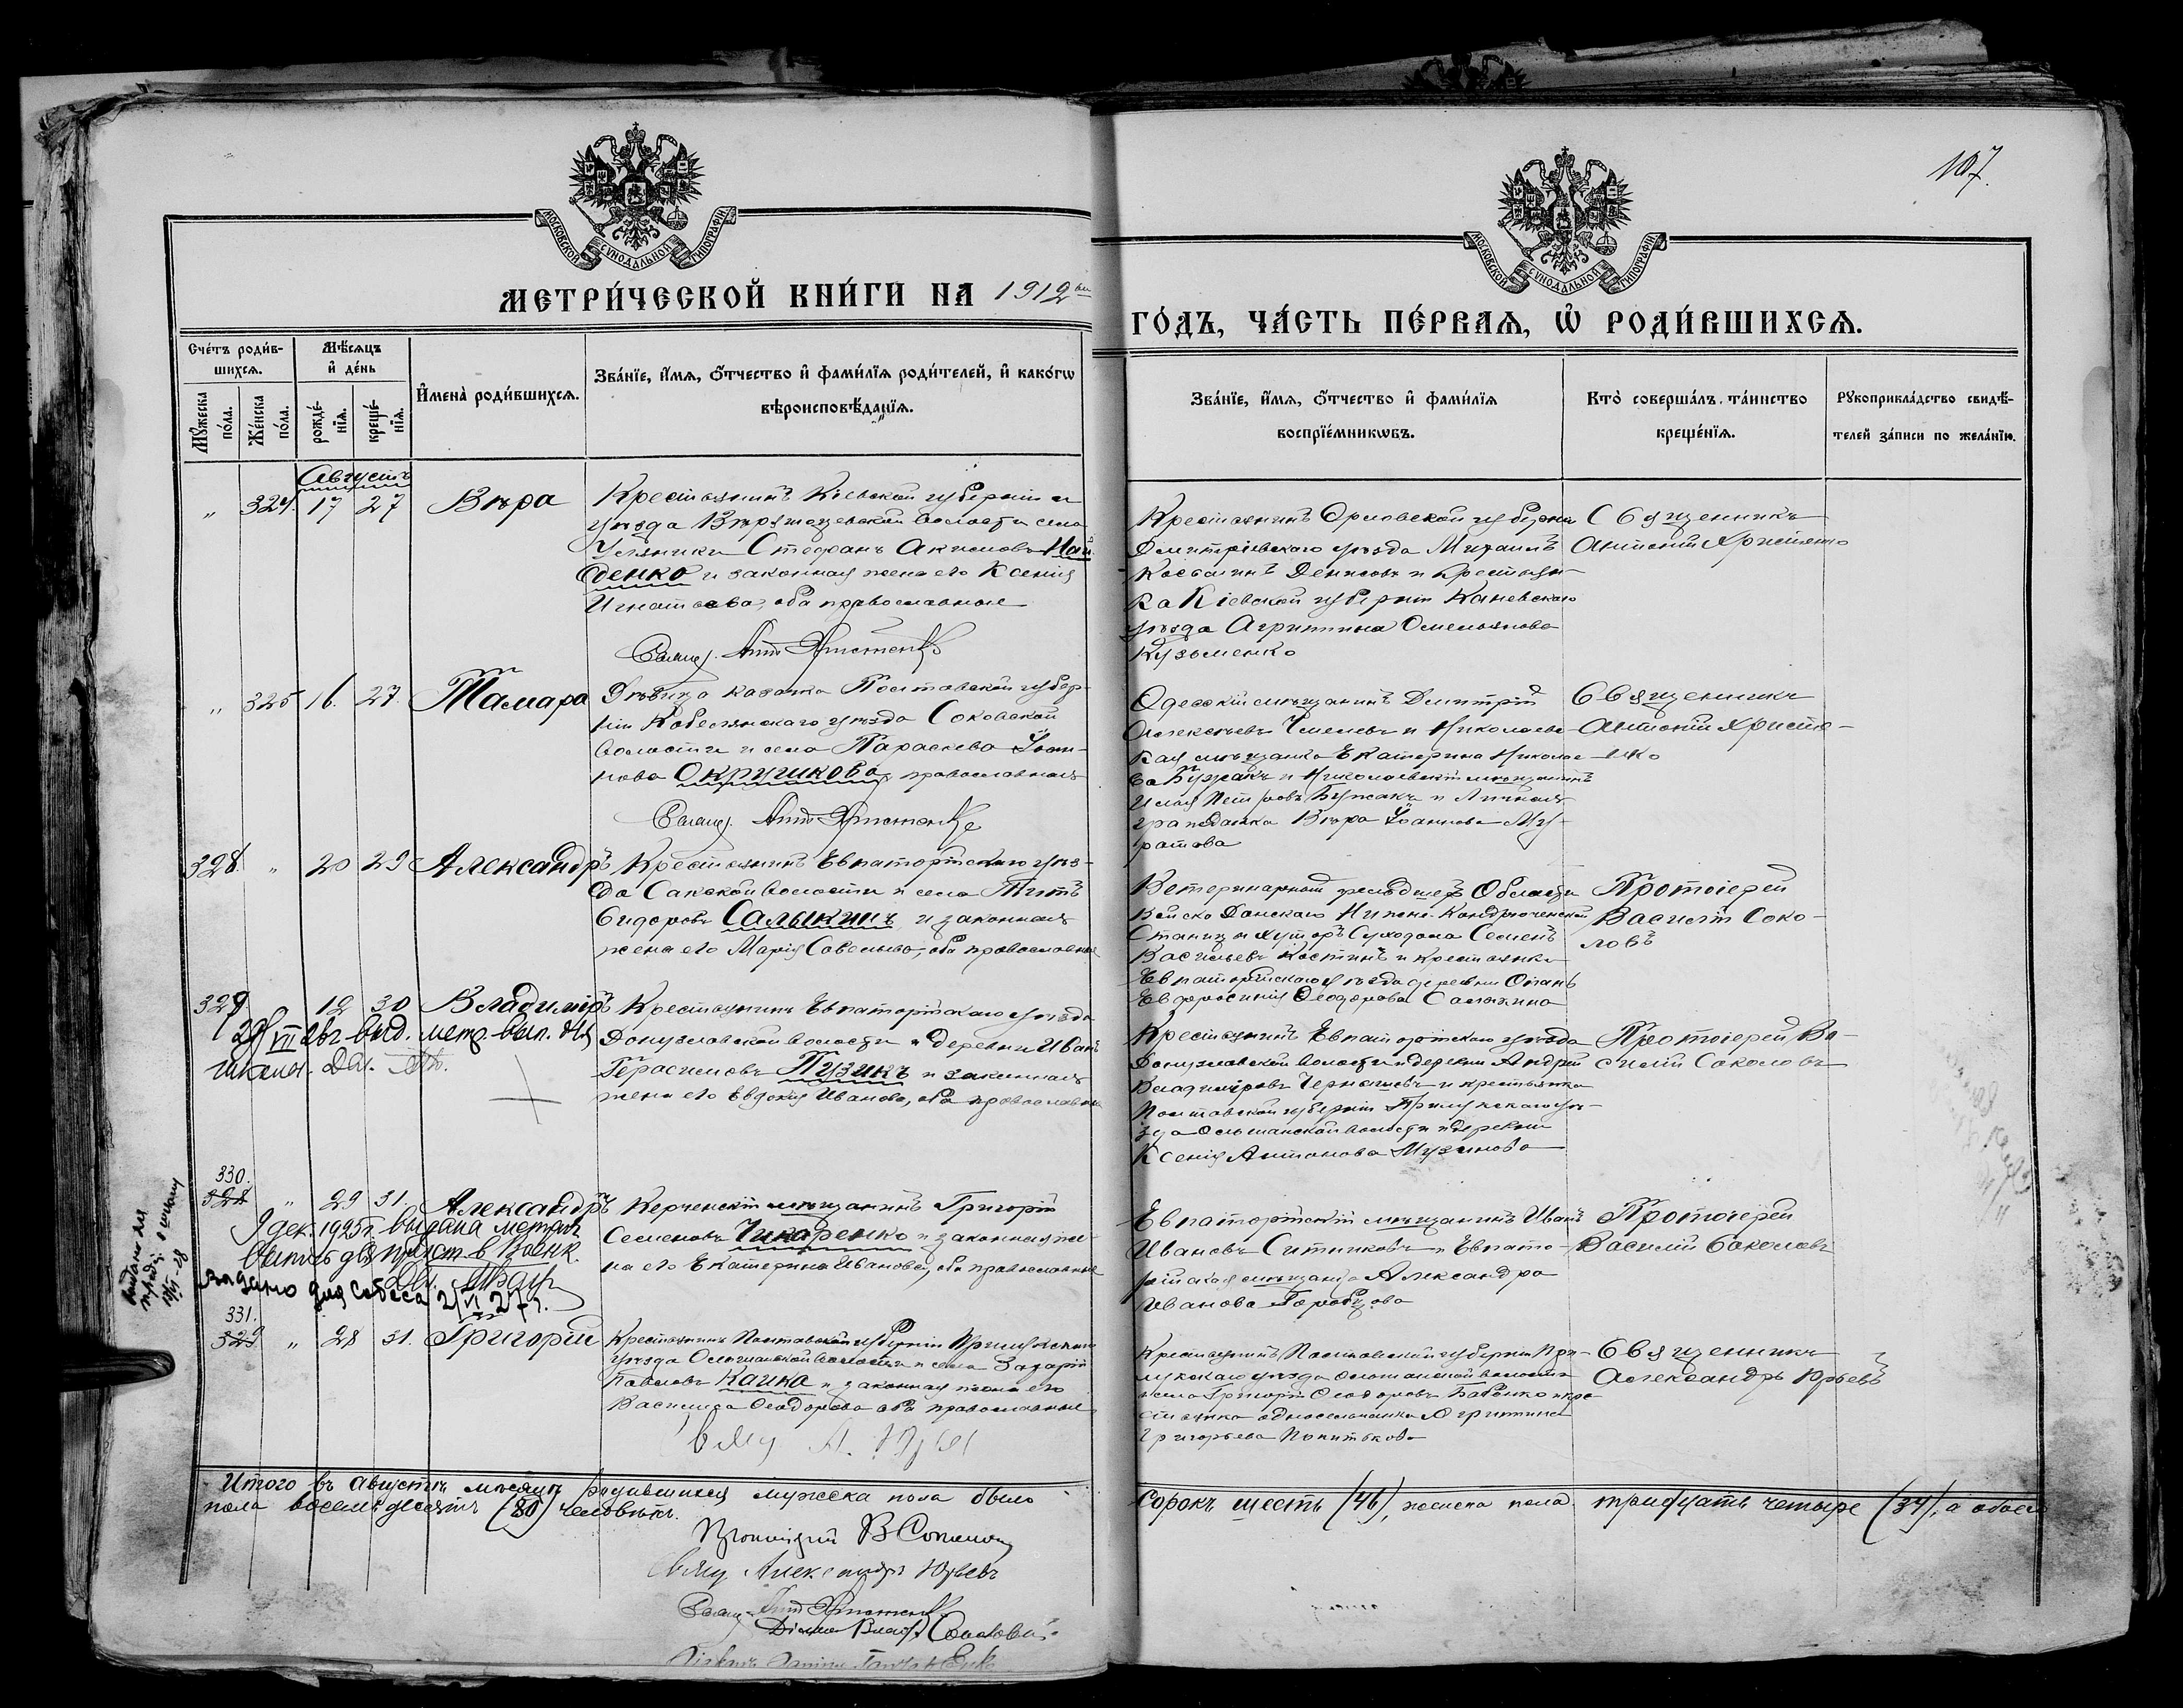 107.
МОСКОВСКОЙ СѴНОДАЛЬНОЙ ТИПОГРАФІИ
МОСКОВСКОЙ СѴНОДАЛЬНОЙ ТИПОГРАФІИ
МЕТРИ́ЧЕСКОЙ КНИ́ГИ НА 1912
ГО́ДЪ, ЧА́СТЬ ПЕ́РВАЯ, Ѡ РОДИ́ВШИХСЯ.
Сче́тъ роди́в-
шихся.
Мꙋ́жеска по́ла.
Же́нска по́ла.
Мѣ́сяцъ
и҆ де́нь
рожде́-
нїя.
креще́-
нїя.
И҆мена̀ роди́вшихся.
Зва́нїе, и҆́мя, ѻ҆́тчество и҆ фами́лїя роди́телей, и҆ како́гѡ
вѣроисповѣ́данїя.
Зва́нїе, и҆́мя, ѻ҆́тчество и҆ фами́лїя
воспрїе́мникѡвъ.
Кто̀ соверша́лъ та́инство
креще́нїя.
Рꙋкоприкла́дство свидѣ́-
телей за́писи по жела́нїю.
Августъ
„ 324. 17 27 Вѣра
Крестьянинъ Кіевской губерніи и
уѣзда волости села
Стефанъ Акимовъ Най-
денко и законная жена его Ксенія
Игнатьева, оба православные
Крестьянинъ Орловской губерніи
Дмитріевскаго уѣзда Михаилъ
Косьминъ Денисовъ и крестьян-
ка Кіевской губерніи Каневскаго
уѣзда Агриппина Омельянова
Кузьменко
Священникъ
Антоній Христенко
„ 325 16. 27. Тамара
Дѣвица казачка Полтавской губер-
ніи Кобелякскаго уѣзда Соколской
волости и села Параскева Іоан-
нова Окружкова, православная
Одесскій мѣщанинъ Дмитрій
Алексѣевъ и Николаев-
кая мѣщанка Екатерина Николае-
ва Бужакъ и Николаевскій мѣщанинъ
Илья Петровъ Бужакъ и Личная
гражданка Вѣра Іоаннова Му-
ратова
Священникъ
Антоній Христе-
нко
328. „ 20 29 Александръ
Крестьянинъ Евпаторійскаго уѣз-
да Сакской волости и села Титъ
Сидоровъ Салыкинъ и законная
жена его Марія Савельева, оба православные
Ветеринарный фельдшеръ Области
Войска Донскаго Нижне-Кундрюченской
Станицы хуторъ Суходола Семенъ
Васильевъ Костинъ и крестьянка
Евпаторійскаго уѣзда деревни
Евфросинія Ѳеодорова Салыкина
Протоіерей
Василій Соко-
ловъ
329 12 30 Владиміръ
Крестьянинъ Евпаторійскаго уѣзда
Донузлавской волости и деревни Иванъ
Герасимовъ Пузикъ и законная
жена его Евдокія Иванова, оба православные
выд. метр. вып. для
школы.
Крестьянинъ Евпаторійскаго уѣзда
Донузлавской волости и деревни Андрей
Владиміровъ Чернышевъ и крестьянка
Полтавской губерніи Прилукскаго уѣ-
зда Ольшанской волости и деревни
Ксенія Антонова Музинова
Протоіерей Ва-
силій Соколовъ
330.
328 „ 29 31. Александръ
Керченскій мѣщанинъ Григорій
Семеновъ Чикаренко и законная же-
на его Екатерина Иванова, оба православные
9 дек. 1925 г. выдана метрич.
выпись для в Военк.
Выдано для Собеса 2/VI 27 г.
Евпаторійскій мѣщанинъ Иванъ
Ивановъ Ситниковъ и Евпато-
рійская мѣщанка Александра
Иванова
Протоіерей
Василій Соколовъ
331.
329 „ 28 31. Григорій
Крестьянинъ Полтавской губерніи Прилукскаго
уѣзда Ольшанской волости и села Захарій
Павловъ Кайка и законная жена его
Василиса Ѳеодорова оба православные
Крестьянинъ Полтавской губерніи При-
лукскаго уѣзда Ольшанской волости
и села Григорій Ѳеодоровъ Бабенко и кре-
стьянка односельчанка Агриппина
Григорьева
Священникъ
Александръ Юрьевъ
Итого въ Августѣ мѣсяцѣ родившихся мужеска пола было
сорокъ шесть (46), женска пола тридцать четыре (34), а обоего
пола восемьдесятъ (80) человѣкъ.
Протоіерей В Соколовъ
Свящ Александръ Юрьевъ